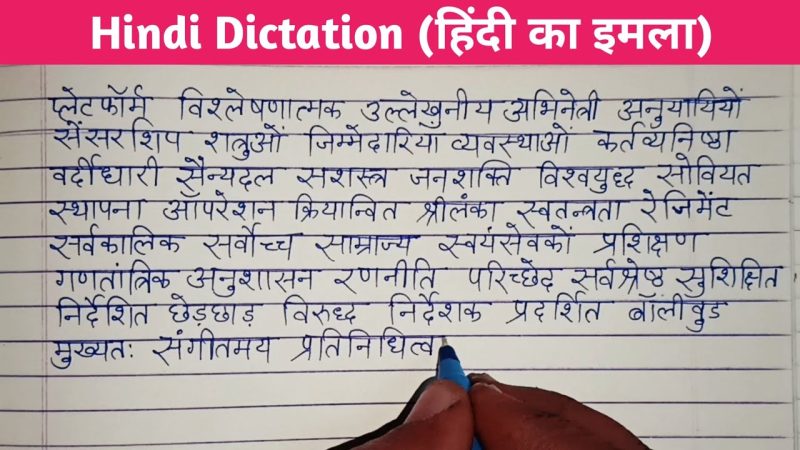 Hindi Dictation (हिंदी का इमला)
प्लेटफॉर्म विश्लेषणात्मक उल्लेखुनीय अभिनेत्री अनुयायियों
सेंसरशिप शत्रुओं जिम्मेदारिया व्यवस्थाओं कर्तव्यनिष्ठा
वर्दीधारी सैन्यदल सशस्त्र जनशक्ति विश्वयुद्ध सोवियत
स्थापना ऑपरेशन क्रियान्वित श्रीलंका स्वतन्त्रता रेजिमेंट
सर्वकालिक सर्वोच्च साम्राज्य स्वयंसेवकों प्रशिक्षण
गणतांत्रिक अनुशासन रणनीति परिच्छेद सर्वश्रेष्ठ सुशिक्षित
निर्देशित छेड़छाड़ विरुद्ध निर्देशक प्रदर्शित बॉलीवुड
मुख्यतः संगीतमय प्रतिनिधित्व